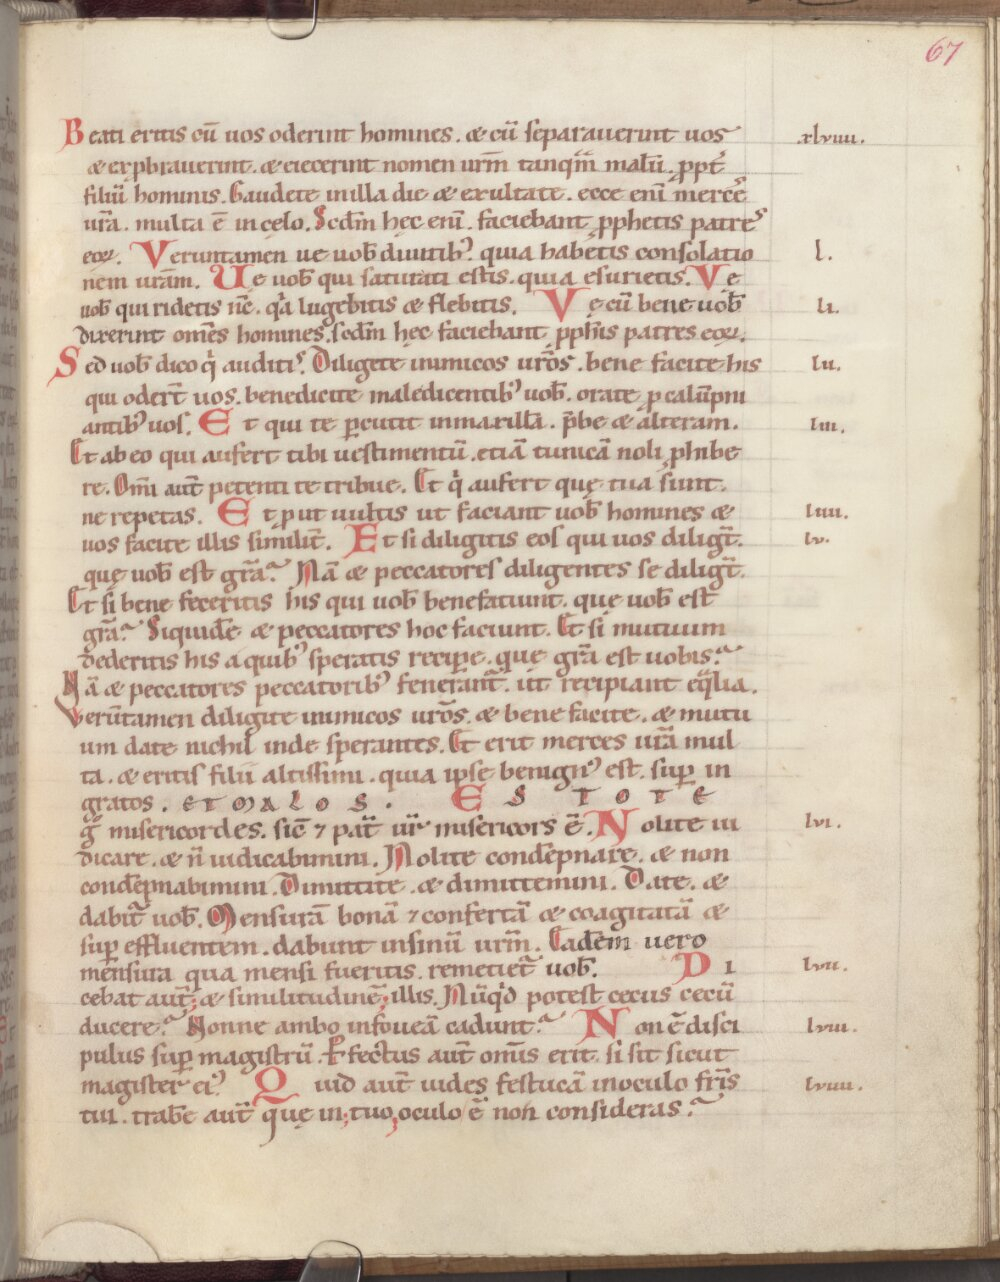 67
Beati eritis cū uos oderint homines. & cū separauerint uos xlviiii.
& exp̱brauerint. & eiecerint nomen urm̄ tanqm̄ malū. ꝓpt̄
filiū hominis. Gaudete in illa die & exultate. ecce eni᷅ mercē
ur̄a. multa ē in celo. Scdm̄ hęc eni᷅. faciebant ꝓphetis patres
eoꝝ. Veruntamen ue uob̄ diuitib᾽. quia habetis consolatio l.
nem urām. Ue uob̄ qui saturati estis. quia esurietis. Ve
uob̄ qui ridetis nc̄. qͣa lugebitis & flebitis. Vę cū bene uob̄ li.
dixerint omēs homines. scdm̄ hęc faciebant ꝓphīs patres eoꝝ.
Sed uob̄ dico qͥ auditis. Diligite inimicos urōs. bene facite his lii.
qui odert̄ uos. benedicite maledicentib᾽ uob̄. orate ꝓ calūpni
antib᾽ uos. Et qui te ꝑcutit in maxillā. p̄be & alteram. liii.
Et ab eo qui aufert tibi uestimentū. etiā tunicā noli ꝓhibe
re. Omī aut̄ petenti te tribue. Et qͥ aufert quę tua sunt.
ne repetas. Et ꝓut uultis ut faciant uob̄ homines & liiii.
uos facite illis similit̄. Et si diligitis eos qui uos diligt̄. lv.
quę uob̄ est grā? Nā & peccatores diligentes se diligt̄.
Et si bene feceritis his qui uob̄ benefatiunt. quę uob̄ est
grā? Siquidē & peccatores hoc faciunt. Et si mutuum
dederitis his a quib᾽ speratis recipe. que grā est uobis?
Nā & peccatores peccatorib᾽ fenerant̄. ut recipiant eqͣlia.
Verūtamen diligite inimicos urōs. & bene facite. & mutu
um date nichil inde sperantes. Et erit merces urā mul
ta. & eritis filii altissimi. quia ipse benign᾽ est. suꝑ in
gratos. et malos. ESTOTE
g̊ misericordes. sic̄ ⁊ pat̄ ur̄ misericors ē. Nolite iu lvi.
dicare. & n̄ iudicabimini. Nolite condēpnare. & non
condēpnabimini. Dimittite. & dimittemini. Date. &
dabit̄ uob̄. Mensurā bonā ⁊ confertā & coagitatā &
suꝑ effluentem. dabunt in sinū urm̄. Eadem uero
mensura qua mensi fueritis. remetiet̄ uob̄. Di lvii.
cebat aut̄; & similitudinē; illis. Nūqͥd potest cecus cecū
ducere? Nonne ambo in foueā cadunt? Non ē disci lviii.
pulus suꝑ magistrū. Ꝑfectus aut̄ omīs erit. si sit sicut
magister ei᾽. Quid aut̄ uides festucā in oculo frīs lviiii.
tui. trabē aut̄ quę in; tuo, oculo ē non consideras?